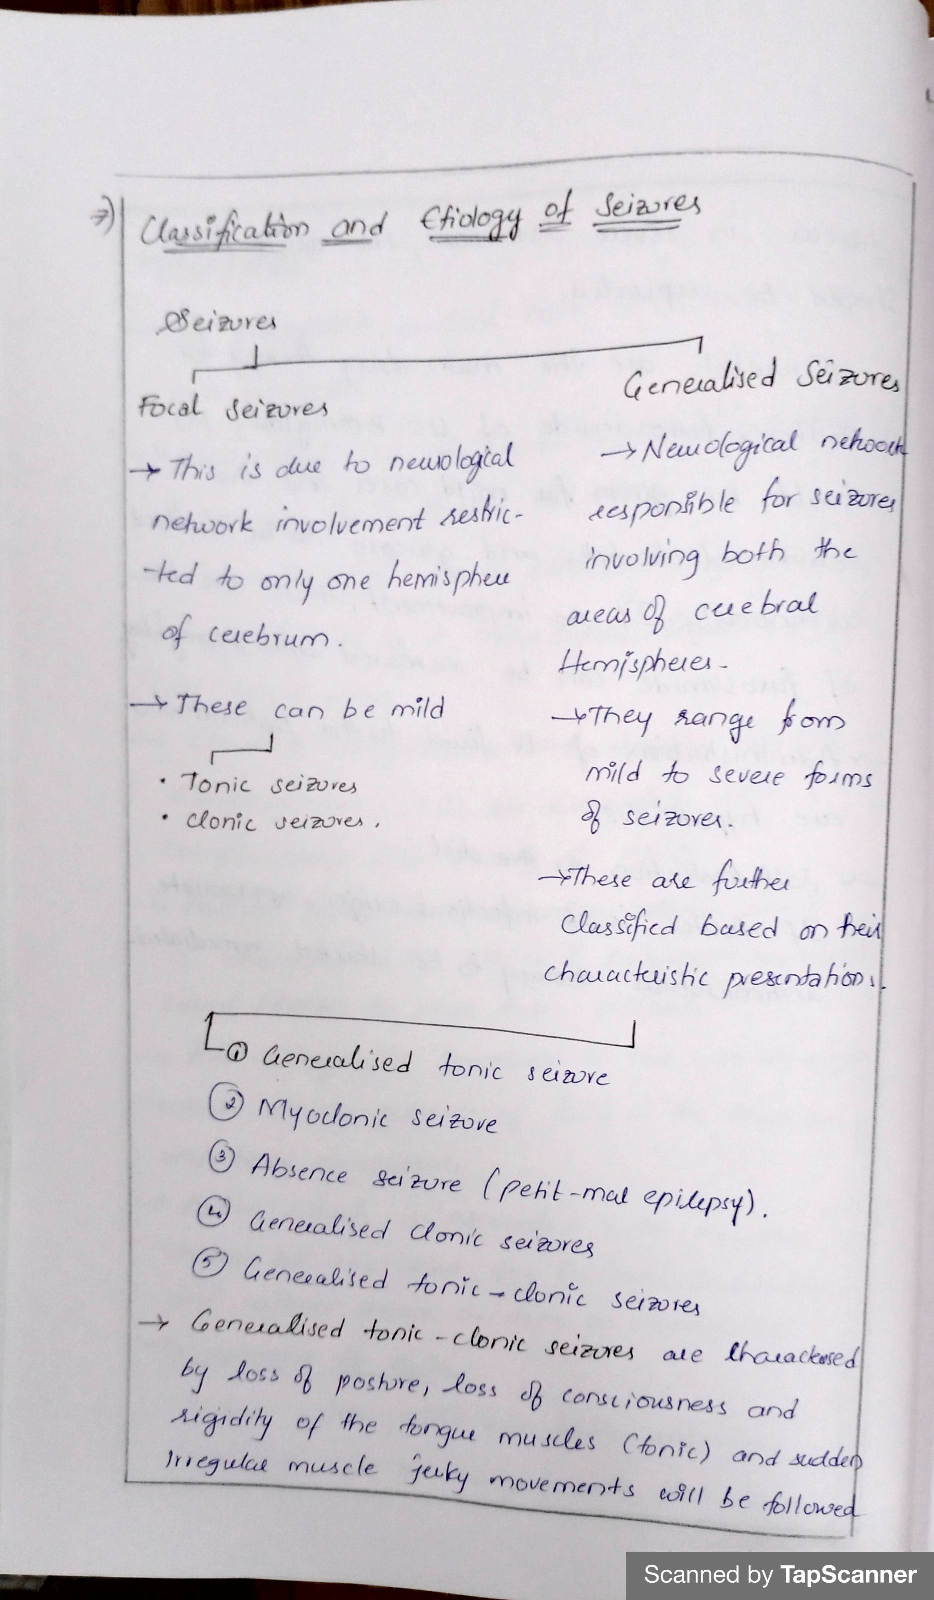 7) Classification and Etiology of Seizures
Seizures
Focal seizures
→ This is due to neurological
network involvement restric-
-ted to only one hemisphere
of cerebrum.
→ These can be mild
• Tonic seizures
• Clonic seizures.
Generalised Seizures
→ Neurological network
responsible for seizures
involving both the
areas of cerebral
Hemispheres-
→ They range from
mild to severe forms
of seizures.
→ These are further
Classified based on their
characteristic presentations.
① Generalised tonic seizure
② Myoclonic seizure
③ Absence seizure (petit-mal epilepsy).
④ Generalised clonic seizures
⑤ Generalised tonic-clonic seizures
→ Generalised tonic-clonic seizures are characterised
by loss of posture, loss of consciousness and
rigidity of the tongue muscles (tonic) and sudden
irregular muscle jerky movements will be followed
Scanned by TapScanner